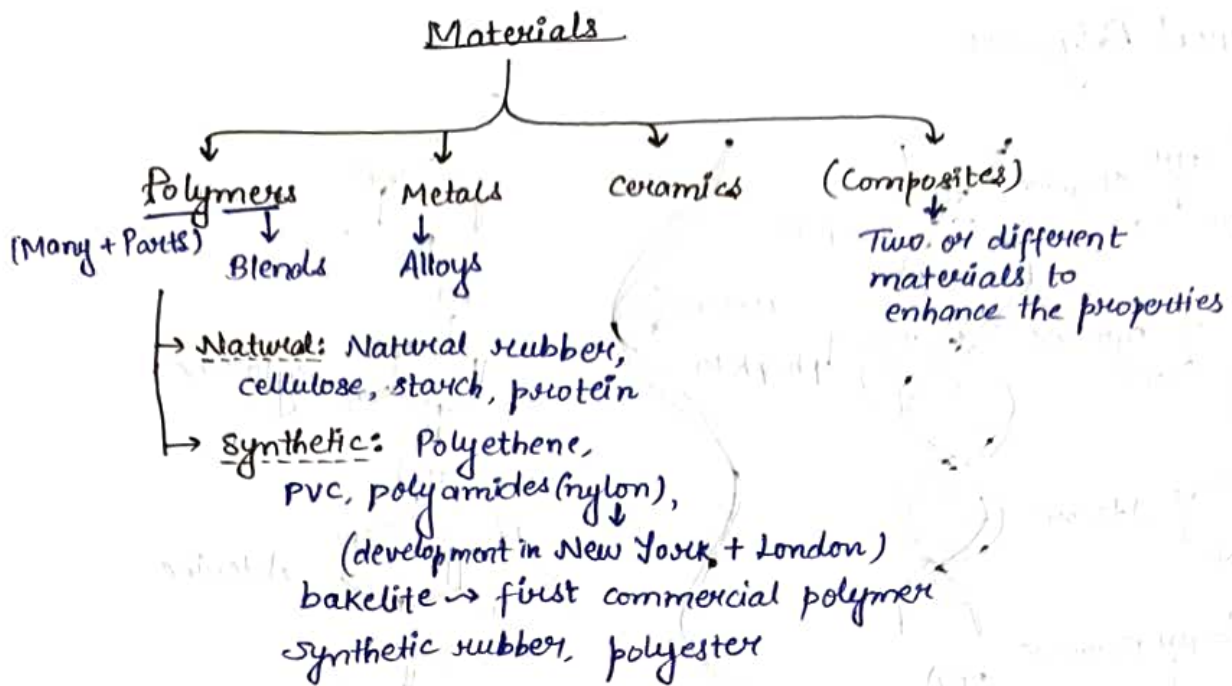 Materials
Polymers Metals Ceramics (Composites)
(Many + Parts) Blends Alloys Two or different
materials to
enhance the properties
→ Natural: Natural rubber,
cellulose, starch, protein
→ Synthetic: Polyethene,
PVC, polyamides (nylon),
(development in New York + London)
bakelite → first commercial polymer
synthetic rubber, polyester